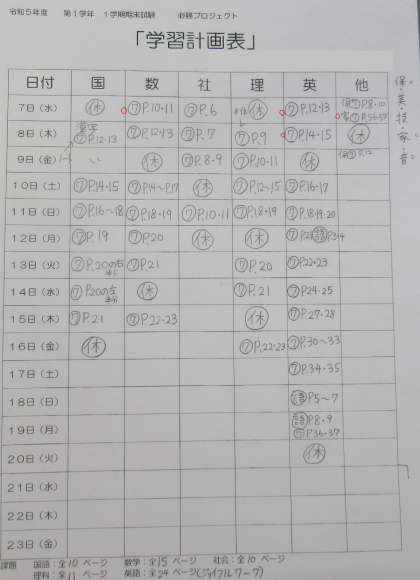 令和5年度 第1学年 1学期期末試験 必勝プロジェクト
「学習計画表」
日付 国 数 社 理 英 他
7日（水） 休 ワP.10-11 ワP.6 休 ワP.12-13
8日（木） 漢字 ワP.12-13 ワP.12-13 ワP.7 ワP.9 ワP.14-15 休
9日（金） 休 ワP.8-9 ワP.10-11 休
10日（土） ワP.14-15 ワP.14~P.17 休 ワP.12~15 ワP.16-17
11日（日） ワP.16~18 ワP.18-19 ワP.10-11 ワP.18-19 ワP.18-19-20
12日（月） ワP.19 ワP.20 休 休
13日（火） ワP.20の右 ワP.21 ワP.20 ワP.22-23
14日（水） ワP.20の左 休 ワP.21 ワP.24-25
15日（木） ワP.21 ワP.22-23 休 ワP.27-28
16日（金） 休 ワP.22-23 ワP.30~33
17日（土） ワP.34-35
18日（日） P5~7
19日（月） P8-9 P.36-37
20日（火） 休
21日（水）
22日（木）
23日（金）
保・美・技・家・音
課題 国語：全10ページ 数学：全15ページ 社会：全10ページ
理科：全11ページ 英語：全24ページ(ジョイフルワーク)